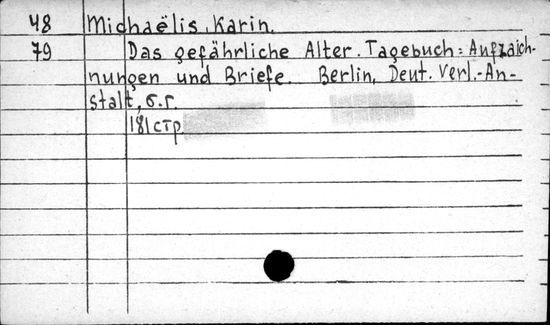 48 Michaëlis, Karin.
79 Das gefährliche Alter. Tagebuch: Aufzaich-
nungen und Briefe. Berlin, Deut. Verl.-An-
stalt, б.г.
181 стр.